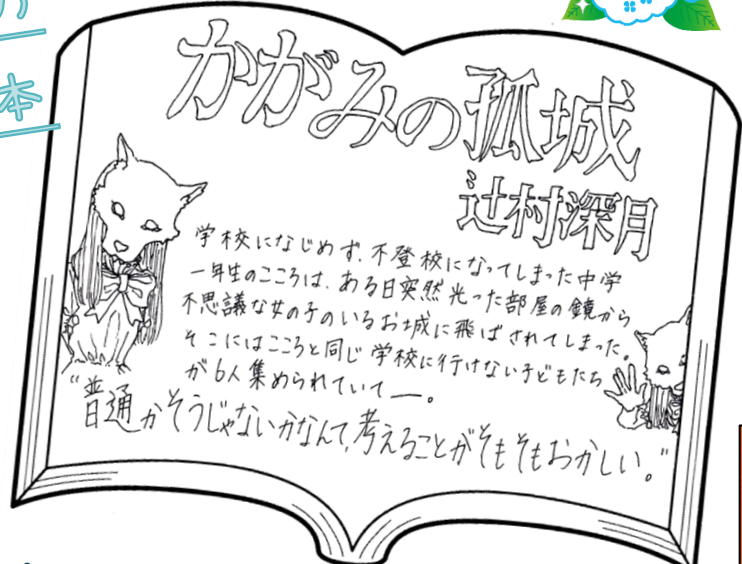 の
本
かがみの孤城
辻村深月
学校になじめず、不登校になってしまった中学
一年生のこころは、ある日突然光った部屋の鏡から
不思議な女の子のいるお城に飛ばされてしまった。
そこにはこころと同じ学校に行けない子どもたち
が6人集められていて―。
“普通かそうじゃないかなんて、考えることがそもそもおかしい。”